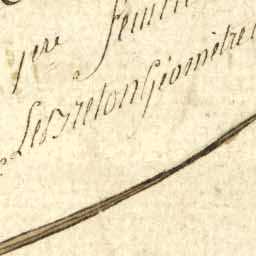 1ere feuille
Lebreton Géomètre